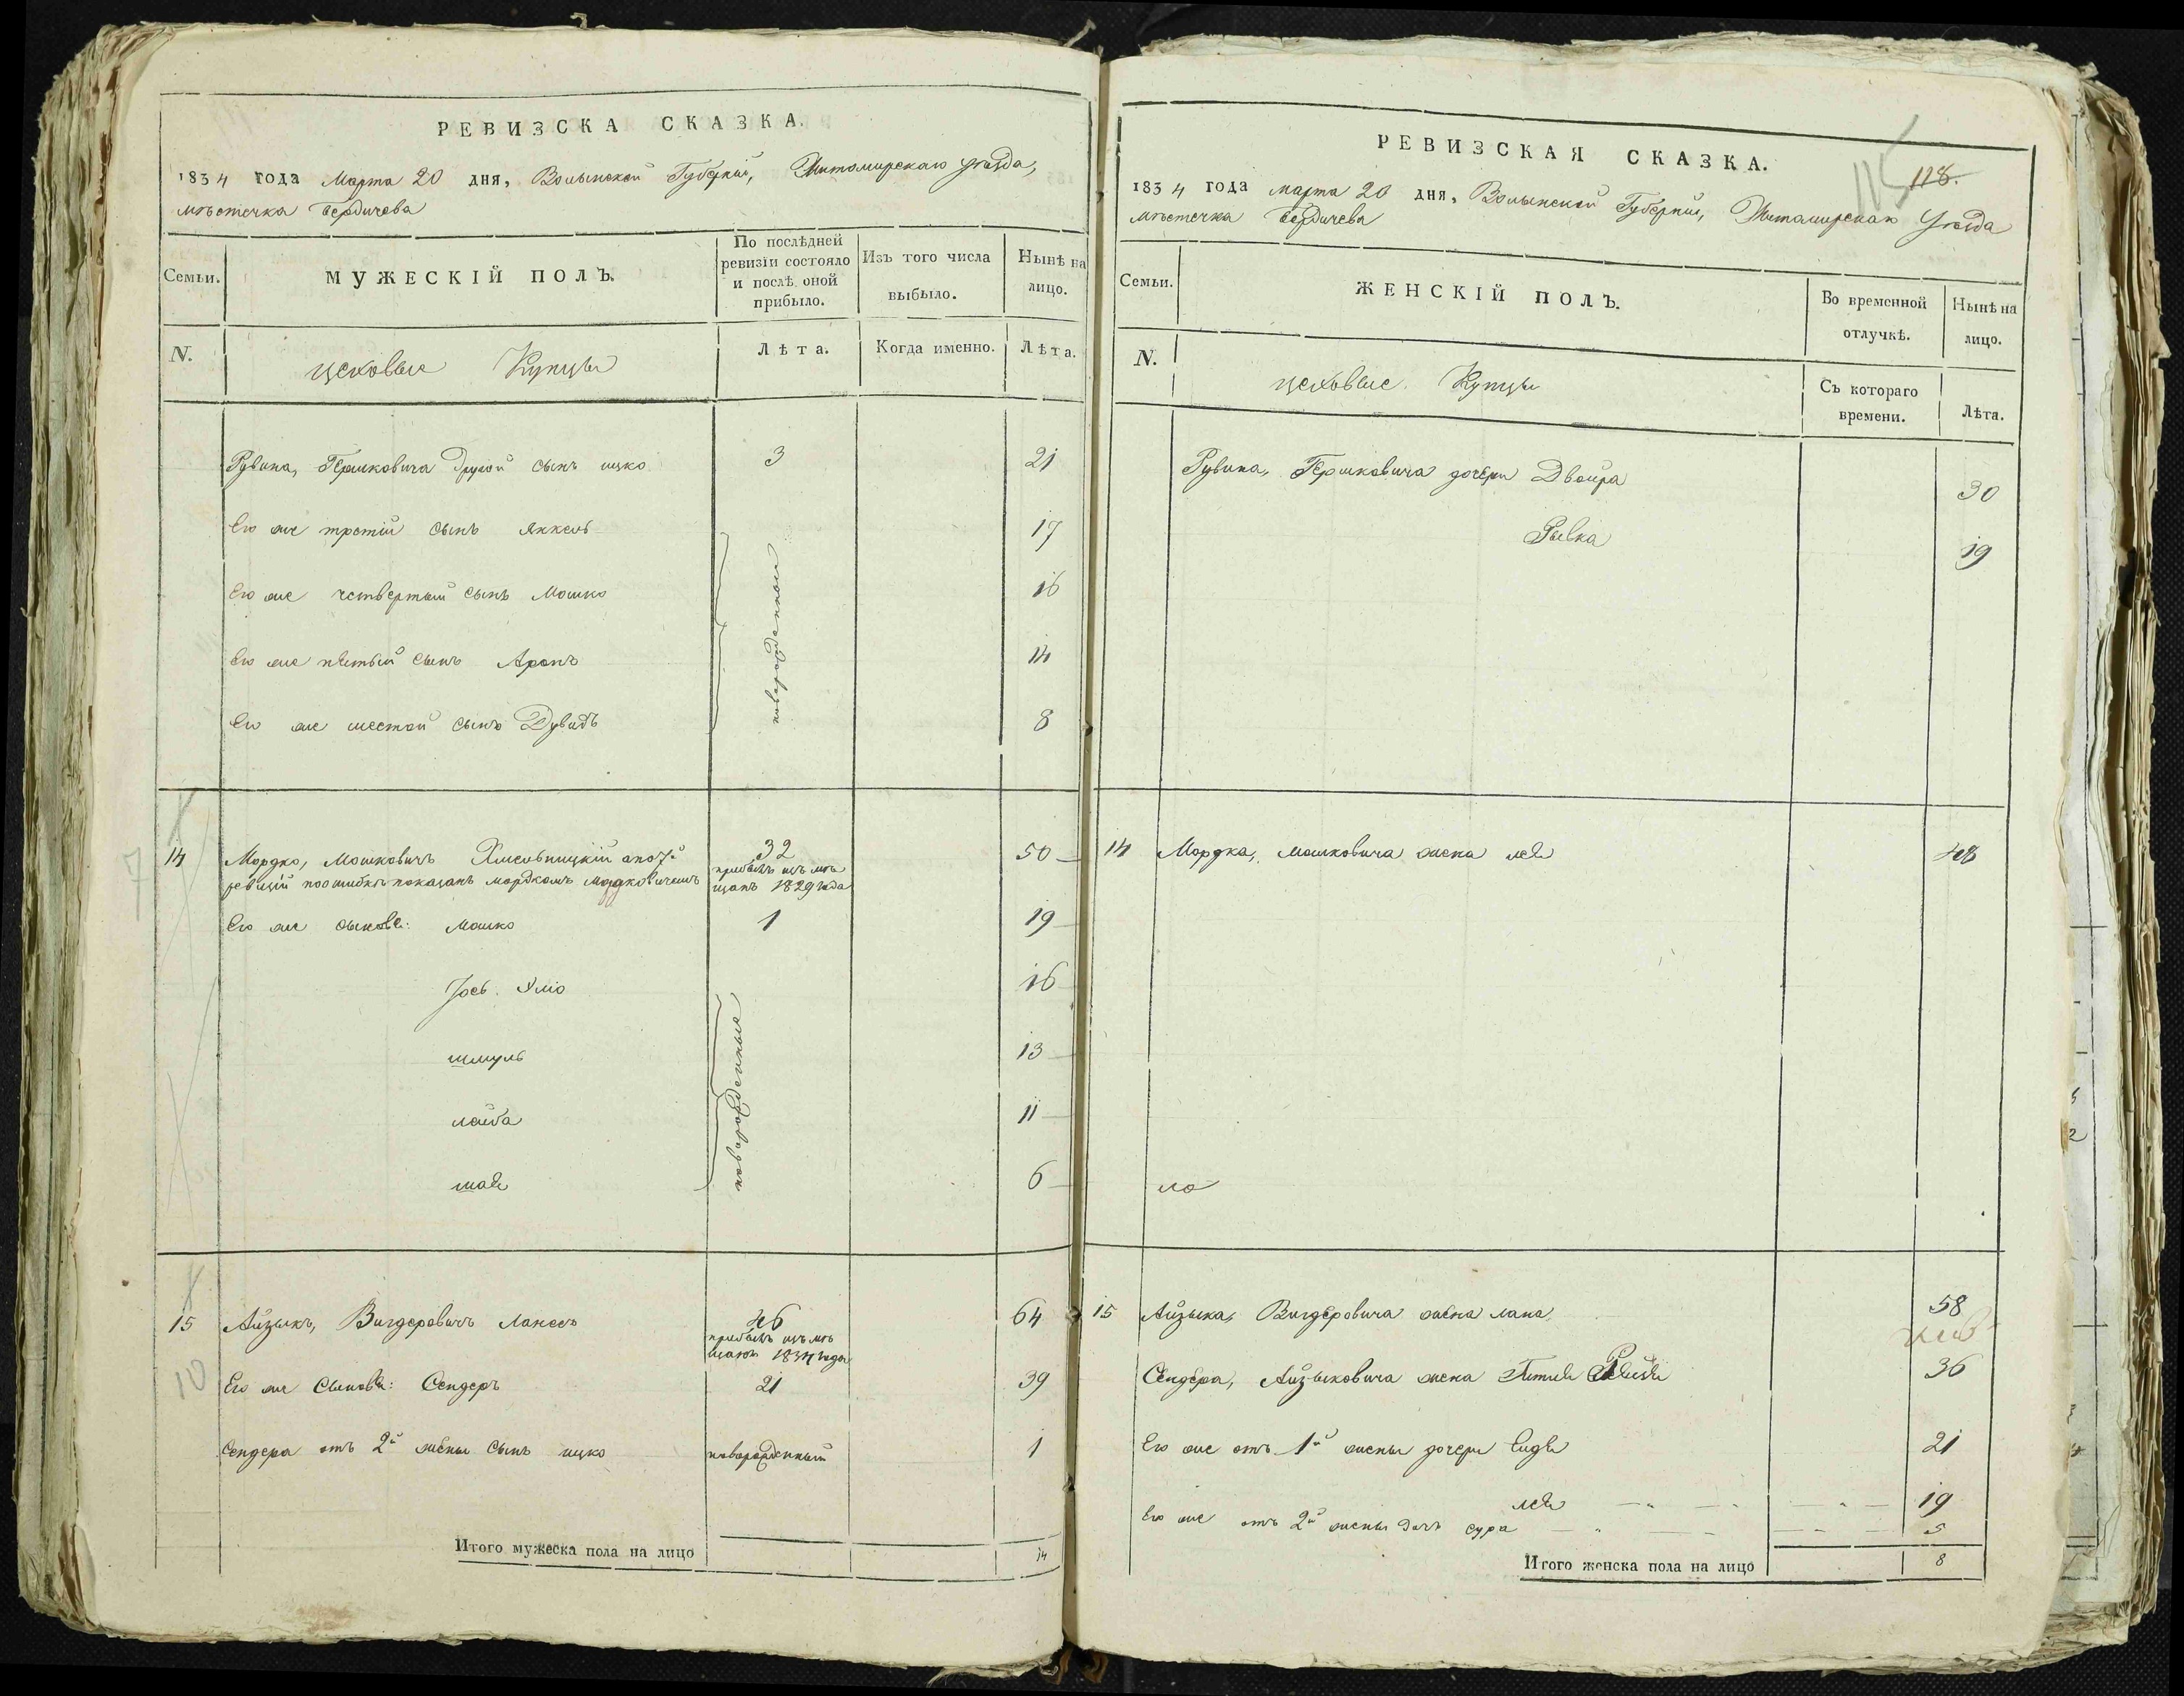 РЕВИЗСКА СКАЗКА.
1834 года Марта 20 дня, Волынской Губерніи, Житомирскаго уѣзда,
мѣстечка Бердичева
Семьи.
МУЖЕСКІЙ ПОЛЪ.
По послѣдней
ревизіи состояло
и послѣ оной
прибыло.
Изъ того числа
выбыло.
Нынѣ на
лицо.
N.
цеховые Купцы
Лѣта.
Когда именно.
Лѣта.
Рувина, Гершковича другой сынъ ицко 3 21
Его же третій сынъ Янкель 17
Его же четвертый сынъ Мошко 16
Его же пятый сынъ Аронъ 14
Его же шестой сынъ Дувидъ 8
новорожденные
14 Мордко, Мошковичъ Хмельницкій по 7й 32 50
ревизіи по ошибки показанъ мордкомъ мордковичемъ
прибылъ изъ мѣ
щанъ 1829 года
Его же сыновя: Мошко 1 19
Іось 16
шмуль 13
лейба 11
шая 6
новорожденные
15 Айзыкъ, Вигдеровичъ Ланесъ 46 64
прибылъ изъ мѣ
щанъ 1834 года
10
Его же Сыновя: Сендеръ 21 39
Сендера отъ 2й жены сынъ ицко новорожденный 1
Итого мужеска пола на лицо 14
РЕВИЗСКАЯ СКАЗКА.
115
118.
1834 года марта 20 дня, Волынской Губерніи, Житомирскаго Уѣзда
мѣстечка Бердичева
Семьи.
ЖЕНСКІЙ ПОЛЪ.
Во временной
отлучкѣ.
Нынѣ на
лицо.
N.
цеховые Купцы
Съ котораго
времени.
Лѣта.
Рувина, Гершковича дочери Двойра 30
Рывка 19
14 Мордка, мошковича жена лея 48
15 Айзыка, Вигдеровича жена лана 58
Сендера, Айзыковича жена Гитля 36
Его же отъ 1й жены дочери Ейдя 21
лея 19
Его же отъ 2й жены дочь сура 5
Итого женска пола на лицо 8